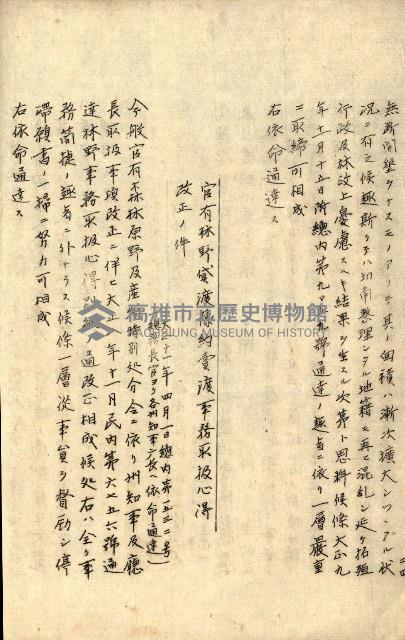 無断開墾ヲナスモノアリテ其ノ面積ハ漸次擴大シツヽアル状
況ニ有之候趣斯クテハ切角整理シタル地籍ヲ再ヒ混乱シ延テ拓殖
行政及林政上憂慮スヘキ結果ヲ生スル次第ト思料候條大正九
年十二月十五日附總内第九 九號通達ノ趣旨ニ依リ一層嚴重
ニ取締可相成
右依命通達ス
官有林野貸渡豫約賣渡事務取扱心得
改正ノ件
大正十一年四月一日總内第五三二号
總務長官ヨリ各州知事庁長ヘ依命通達
今般官有森林原野及産 特別処分令ニ依リ州知事及廳
長取扱事項改正ニ伴ヒ大正 年十一月民内第六七五六號通
達林野事務取扱心得別 通改正相成候処右ハ全ク事
務簡捷ノ趣旨ニ外ナラス候條一層從事員ヲ督励シ停
帶願書ノ一掃ニ努力可相成
右依命通達ス
高雄市立歷史博物館
KAOHSIUNG MUSEUM OF HISTORY